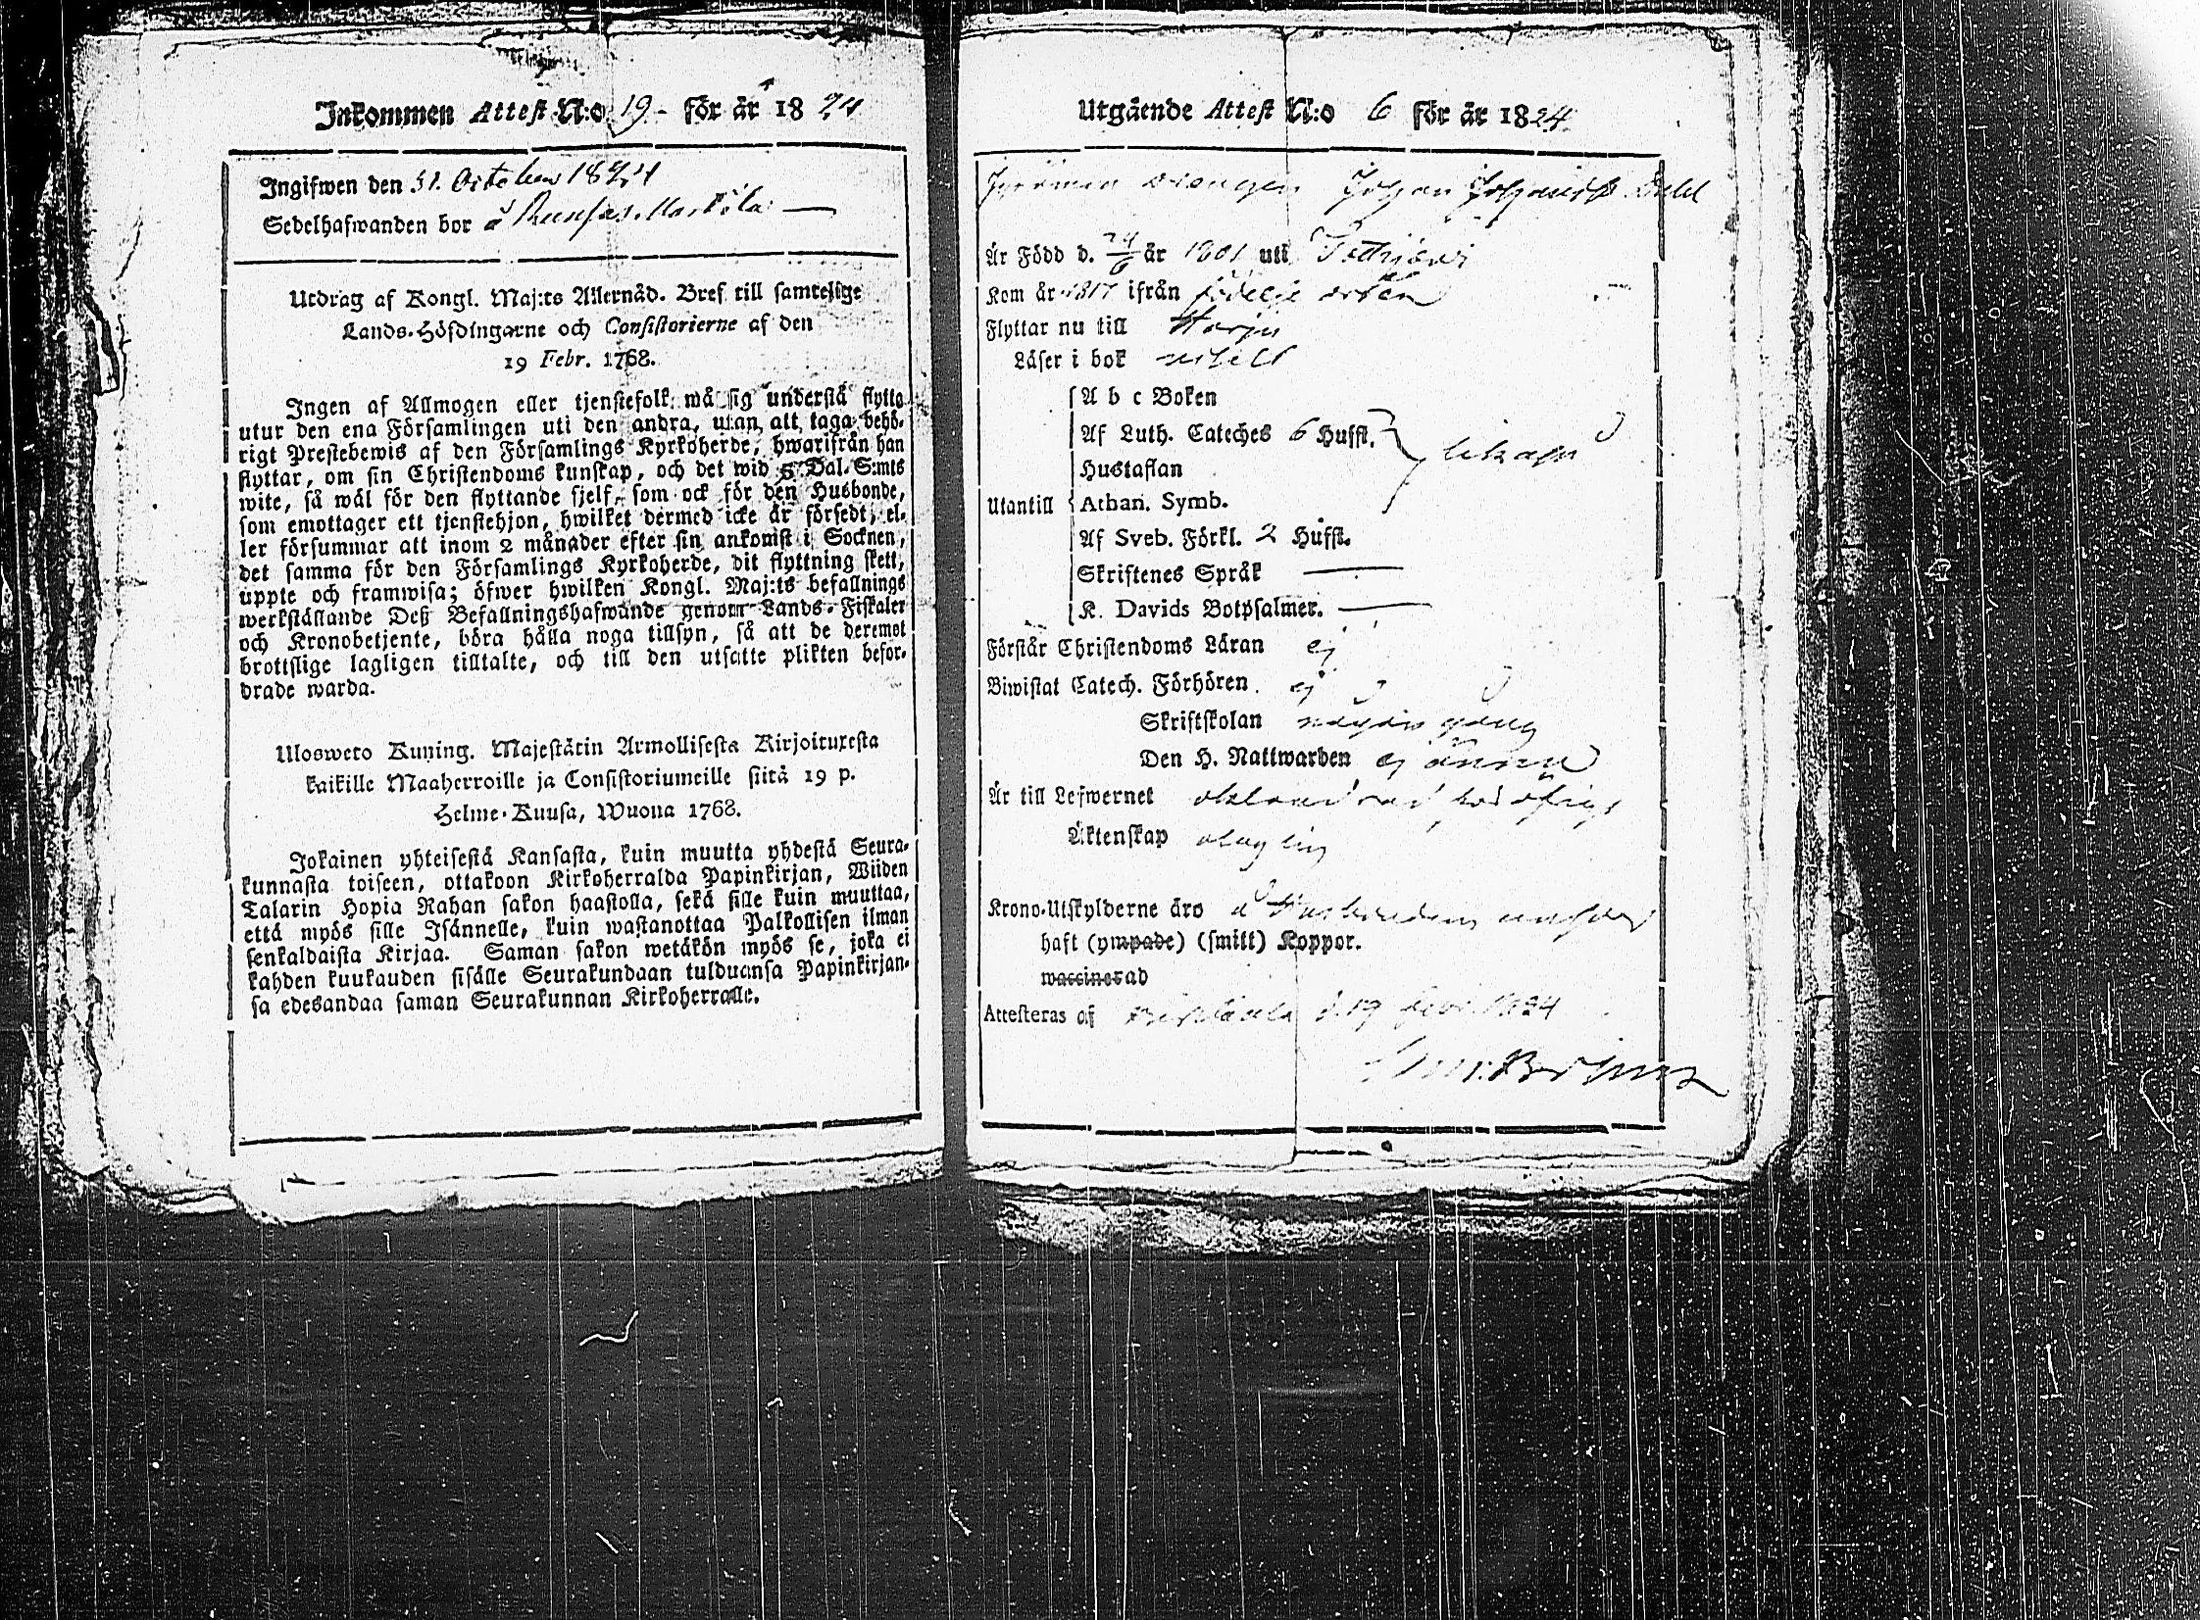 Inkommen Attest N:o 19 för år 1824
Ingifwen den 31. October 1824
Sedelhafwanden bor å
Utdrag af Kongl. Maj:ts Allernåd. Bref till samtelige
Lands-Höfdingarne och Consistorierne af den
19 Febr. 1768.
Ingen af Allmogen eller tjenstefolk må sig understå flytta
utur den ena Församlingen uti den andra, utan att taga behö-
rigt Prestebewis af den Församlings Kyrkoherde, hwarifrån han
flyttar, om sin Christendoms kunskap, och det wid 5 Dal. S:mts
wite, så wäl för den flyttande sjelf, som ock för den Husbonde,
som emottager ett tjenstehjon, hwilket dermed icke är försedt, el-
ler försummar att inom 2 månader efter sin ankomst i Socknen,
det samma för den Församlings Kyrkoherde, dit flyttning skett,
uppte och framwisa; öfwer hwilken Kongl. Maj:ts befallnings
werkställande Deß Befallningshafwande genom Lands-Fiskaler
och Kronobetjente, böra hålla noga tillsyn, så att de deremot
brottslige lagligen tilltalte, och till den utsatte plikten befor-
drade warda.
Ulosweto Kuning. Majestätin Armollisesta Kirjoituxesta
kaikille Maaherroille ja Consistoriumeille siitä 19 p.
Helme-Kuusa, Wuona 1768.
Jokainen yhteisestä Kansasta, kuin muutta yhdestä Seura-
kunnasta toiseen, ottakoon Kirkoherralda Papinkirjan, Wiiden
Talarin Hopia Rahan sakon haastolla, sekä sille kuin muuttaa,
että myös sille Isännelle, kuin wastanottaa Palkollisen ilman
senkaldaista Kirjaa. Saman sakon wetäkön myös se, joka ei
kahden kuukauden sisälle Seurakundaan tulduansa Papinkirjan-
sa edesandaa saman Seurakunnan Kirkoherralle.
Utgående Attest N:o 6 för år 1824
drängen Johan Johansson
Är Född d. 24/6 år 1801 uti
Kom år 1817 ifrån födelse orten
Flyttar nu till Harju
Läser i bok
A b c Boken
Af Luth. Cateches 6 Hufst.
Hustaflan
Utantill Athan. Symb.
Af Sveb. Förkl. 2 Hufst.
Skriftenes Språk
K. Davids Botpsalmer.
Förstår Christendoms Läran ej
Biwistat Catech. Förhören ej
Skriftskolan någon gång
Den H. Nattwarden ej ännu
Är till Lefwernet
Äktenskap
Krono-Utskylderne äro
haft (ympade) (smitt) Koppor.
waccinerad
Attesteras af d. 19 1824